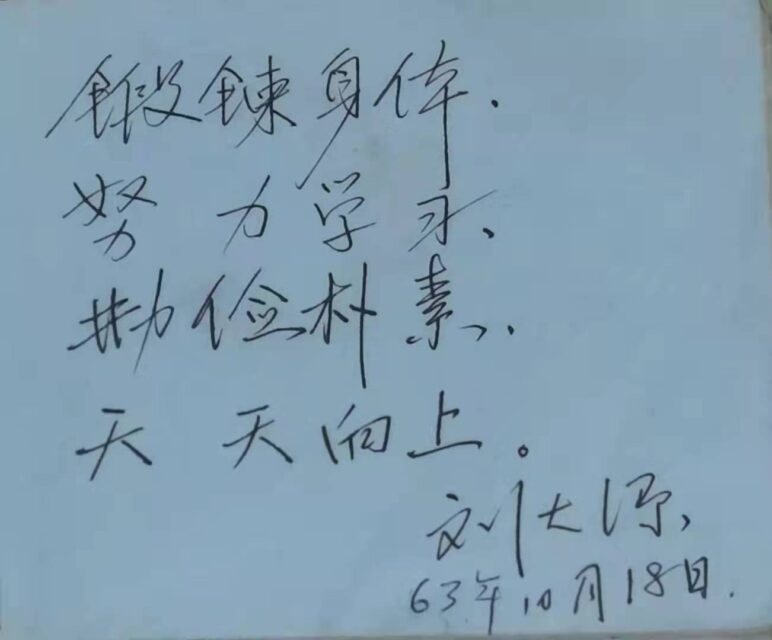 鍛鍊身体.
努力学习、
勤俭朴素.
天天向上。
刘大源
63年10月18日.